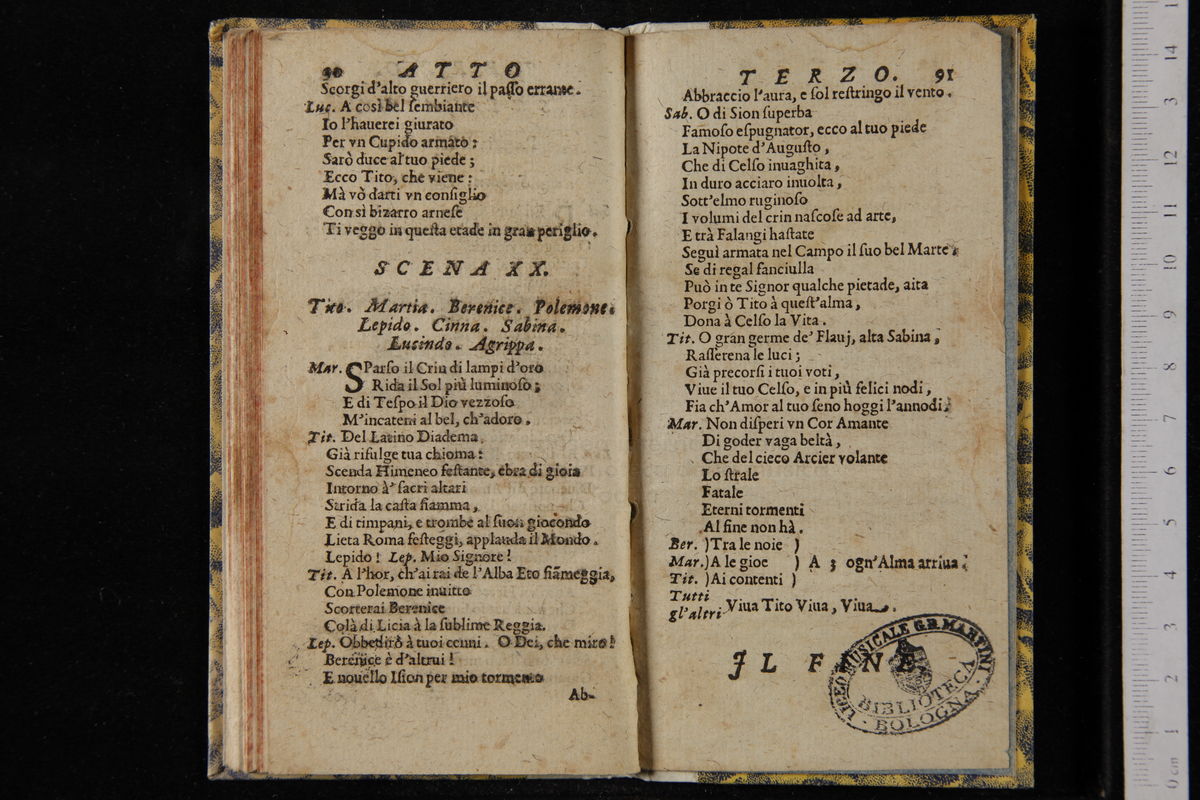 90 ATTO
Scorgi d'alto guerriero il paſſo errante.
Luc. A così bel ſembiante
Io l'hauerei giurato
Per vn Cupido armato:
Sarò duce al tuo piede;
Ecco Tito, che viene:
Mà vò darti vn conſiglio
Con sì bizarro arneſe
Ti veggo in queſta etade in gran periglio.
SCENA XX.
Tito. Martia. Berenice. Polemone.
Lepido. Cinna. Sabina.
Lucindo. Agrippa.
Mar. SParſo il Crin di lampi d'oro
Rida il Sol più luminoſo;
E di Teſpo il Dio vezzoſo
M'incateni al bel, ch'adoro.
Tit. Del Latino Diadema
Già rifulge tua chioma:
Scenda Himeneo feſtante, ebra di gioia
Intorno à' ſacri altari
Strida la caſta fiamma,
E di timpani, e trombe al ſuon giocondo
Lieta Roma feſteggi, applauda il Mondo.
Lepido! Lep. Mio Signore!
Tit. A l'hor, ch'ai rai de l'Alba Eto fiāmeggia,
Con Polemone inuitto
Scorterai Berenice
Colà di Licia à la ſublime Reggia.
Lep. Obbedirò à tuoi cenni. O Dei, che miro!
Berenice è d'altrui!
E nouello Iſion per mio tormento
Ab-
TERZO. 91
Abbraccio l'aura, e ſol reſtringo il vento.
Sab. O di Sion ſuperba
Famoſo eſpugnator, ecco al tuo piede
La Nipote d'Auguſto,
Che di Celſo inuaghita,
In duro acciaro inuolta,
Sott'elmo ruginoſo
I volumi del crin naſcoſe ad arte,
E trà Falangi haſtate
Seguì armata nel Campo il ſuo bel Marte.
Se di regal fanciulla
Può in te Signor qualche pietade, aita
Porgi ò Tito à queſt'alma,
Dona à Celſo la Vita.
Tit. O gran germe de' Flauj, alta Sabina,
Raſſerena le luci;
Già precorſi i tuoi voti,
Viue il tuo Celſo, e in più felici nodi,
Fia ch'Amor al tuo ſeno hoggi l'annodi.
Mar. Non diſperi vn Cor Amante
Di goder vaga beltà,
Che del cieco Arcier volante
Lo ſtrale
Fatale
Eterni tormenti
Al fine non hà.
Ber. )Tra le noie )
Mar.)A le gioe ) A 3 ogn'Alma arriua.
Tit. )Ai contenti )
Tutti
gl'altri Viua Tito Viua, Viua.
IL FINE
LICEO MUSICALE G.B. MARTINI
BIBLIOTECA
BOLOGNA